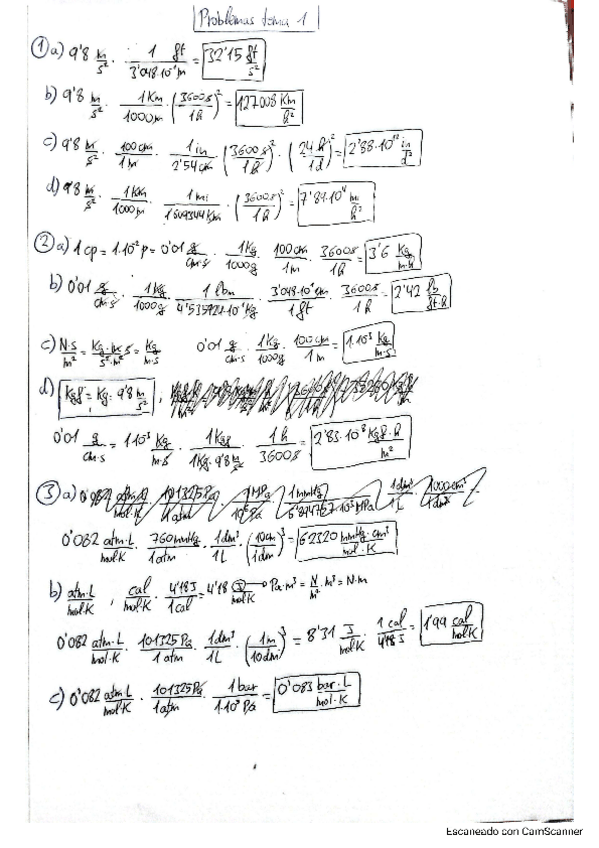 Problemas tema 1
① a) 9'8 m/s² · 1 ft/3'048·10⁻¹m = 32'15 ft/s²
b) 9'8 m/s² · 1 Km/1000m · (3600s/1h)² = 127008 Km/h²
c) 9'8 m/s² · 100cm/1m · 1 in/2'54cm · (3600s/1h)² · (24h/1d)² = 2'88·10¹² in/d²
d) 9'8 m/s² · 1Km/1000m · 1 mi/1'609344Km · (3600s/1h)² = 7'89·10⁴ mi/h²
② a) 1 cp = 1·10⁻² p = 0'01 g/cm·s · 1Kg/1000g · 100cm/1m · 3600s/1h = 3'6 Kg/m·h
b) 0'01 g/cm·s · 1Kg/1000g · 1 lbm/Kg · 3'048·10¹cm/1ft · 3600s/1h = 2'42 lb/ft·h
c) N·s/m² = Kg·m·s/s²·m² = Kg/m·s 0'01 g/cm·s · 1Kg/1000g · 100cm/1m = 1·10⁻³ Kg/m·s
d) Kgf = Kg · 9'8 m/s² ,
0'01 g/cm·s = 1·10⁻³ Kg/m·s · 1Kgf/1Kg·9'8 m/s² · 1h/3600s = 2'83·10⁻⁸ Kgf·h/m²
③ a) 0'082 atm·L/mol·K · 101325Pa/1atm · 1MPa/10⁶Pa · 1mmHg/MPa · 1dm³/1L · 1000cm³/1dm³
0'082 atm·L/mol·K · 760mmHg/1atm · 1dm³/1L · (10cm/1dm)³ = 62320 mmHg·cm³/mol·K
b) atm·L/mol·K , cal/mol·K · 4'18J/1cal = 4'18 J/mol·K → Pa·m³ = N/m² · m³ = N·m
0'082 atm·L/mol·K · 101325Pa/1atm · 1dm³/1L · (1m/10dm)³ = 8'31 J/mol·K · 1 cal/4'18 J = 1'99 cal/mol·K
c) 0'082 atm·L/mol·K · 101325Pa/1atm · 1bar/1·10⁵Pa = 0'083 bar·L/mol·K
Escaneado con CamScanner